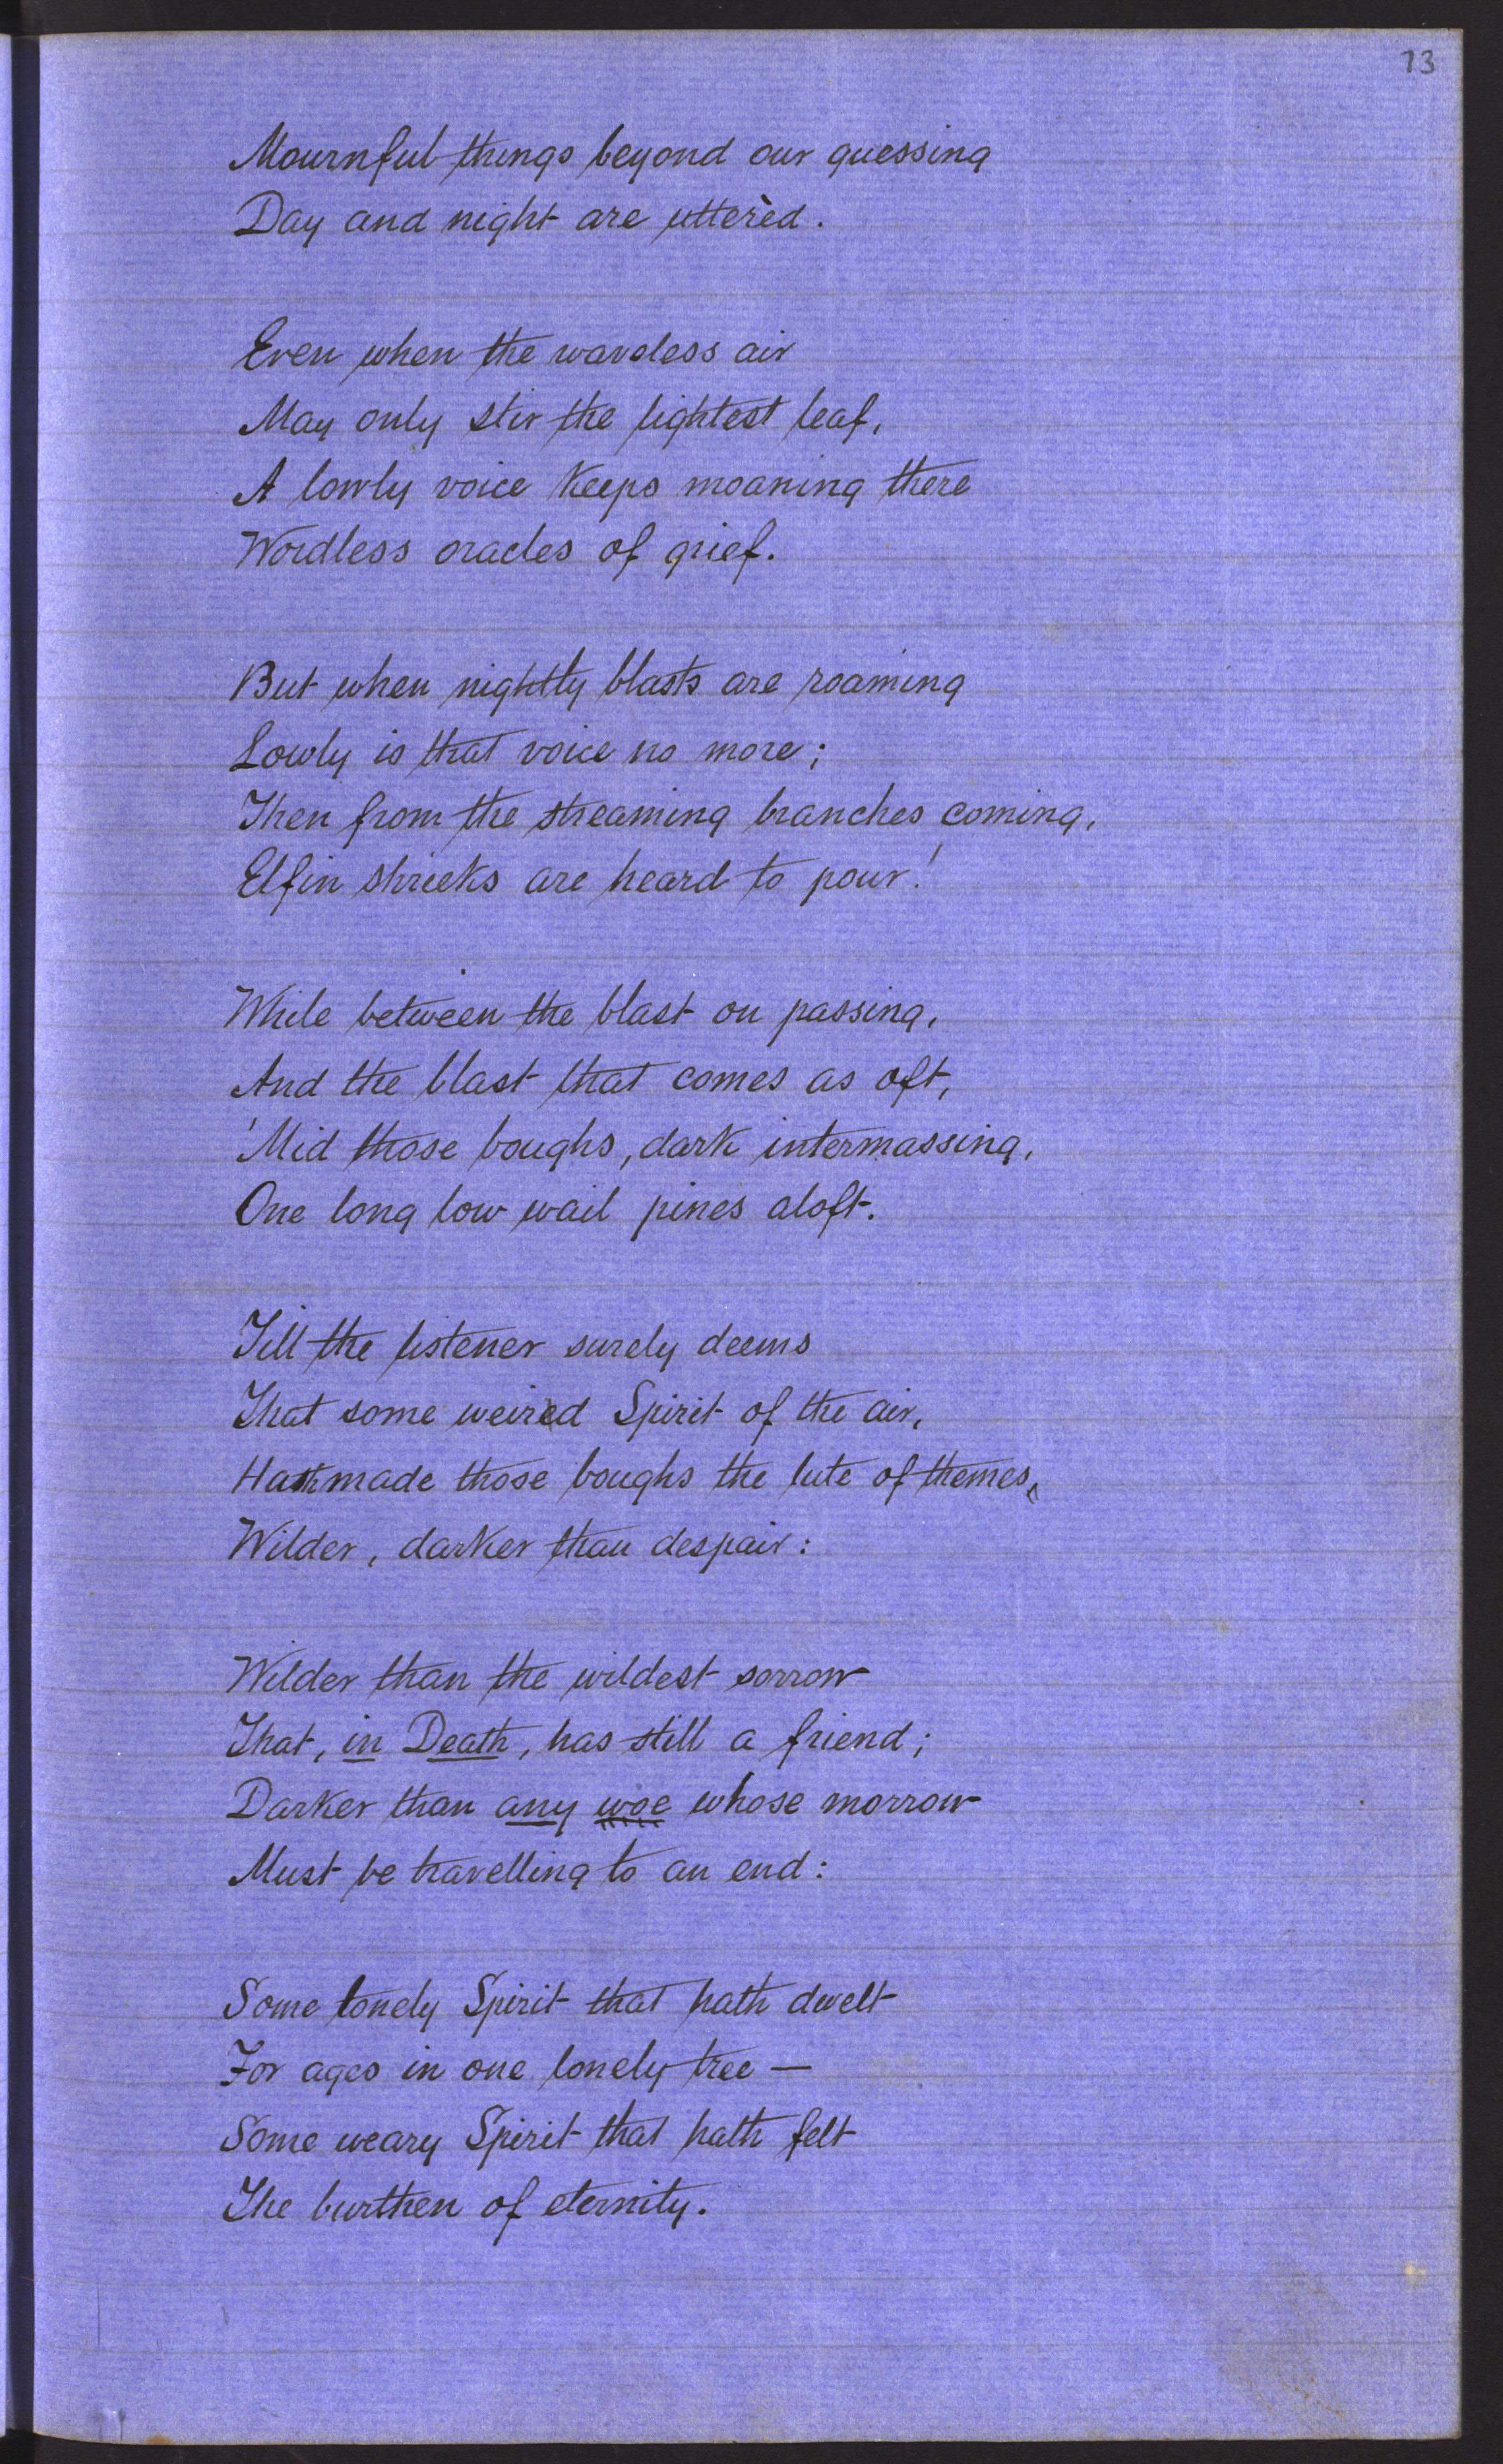 73
Mournful things beyond our guessing
Day and night are utterèd.
Even when the waveless air
May only stir the lightest leaf,
A lowly voice keeps moaning there
Wordless oracles of grief.
But when nightly blasts are roaming
Lowly is that voice no more;
Then from the streaming branches coming,
Elfin shrieks are heard to pour!
While between the blast on passing,
And the blast that comes as oft,
'Mid those boughs, dark intermassing,
One long low wail pines aloft.
Till the listener surely deems
That some weired Spirit of the air,
Hath made those boughs the lute of themes,
Wilder, darker than despair:
Wilder than the wildest sorrow
That, in Death, has still a friend;
Darker than any woe whose morrow
Must be travelling to an end:
Some lonely Spirit that hath dwelt
For ages in one lonely tree —
Some weary Spirit that hath felt
The burthen of eternity.